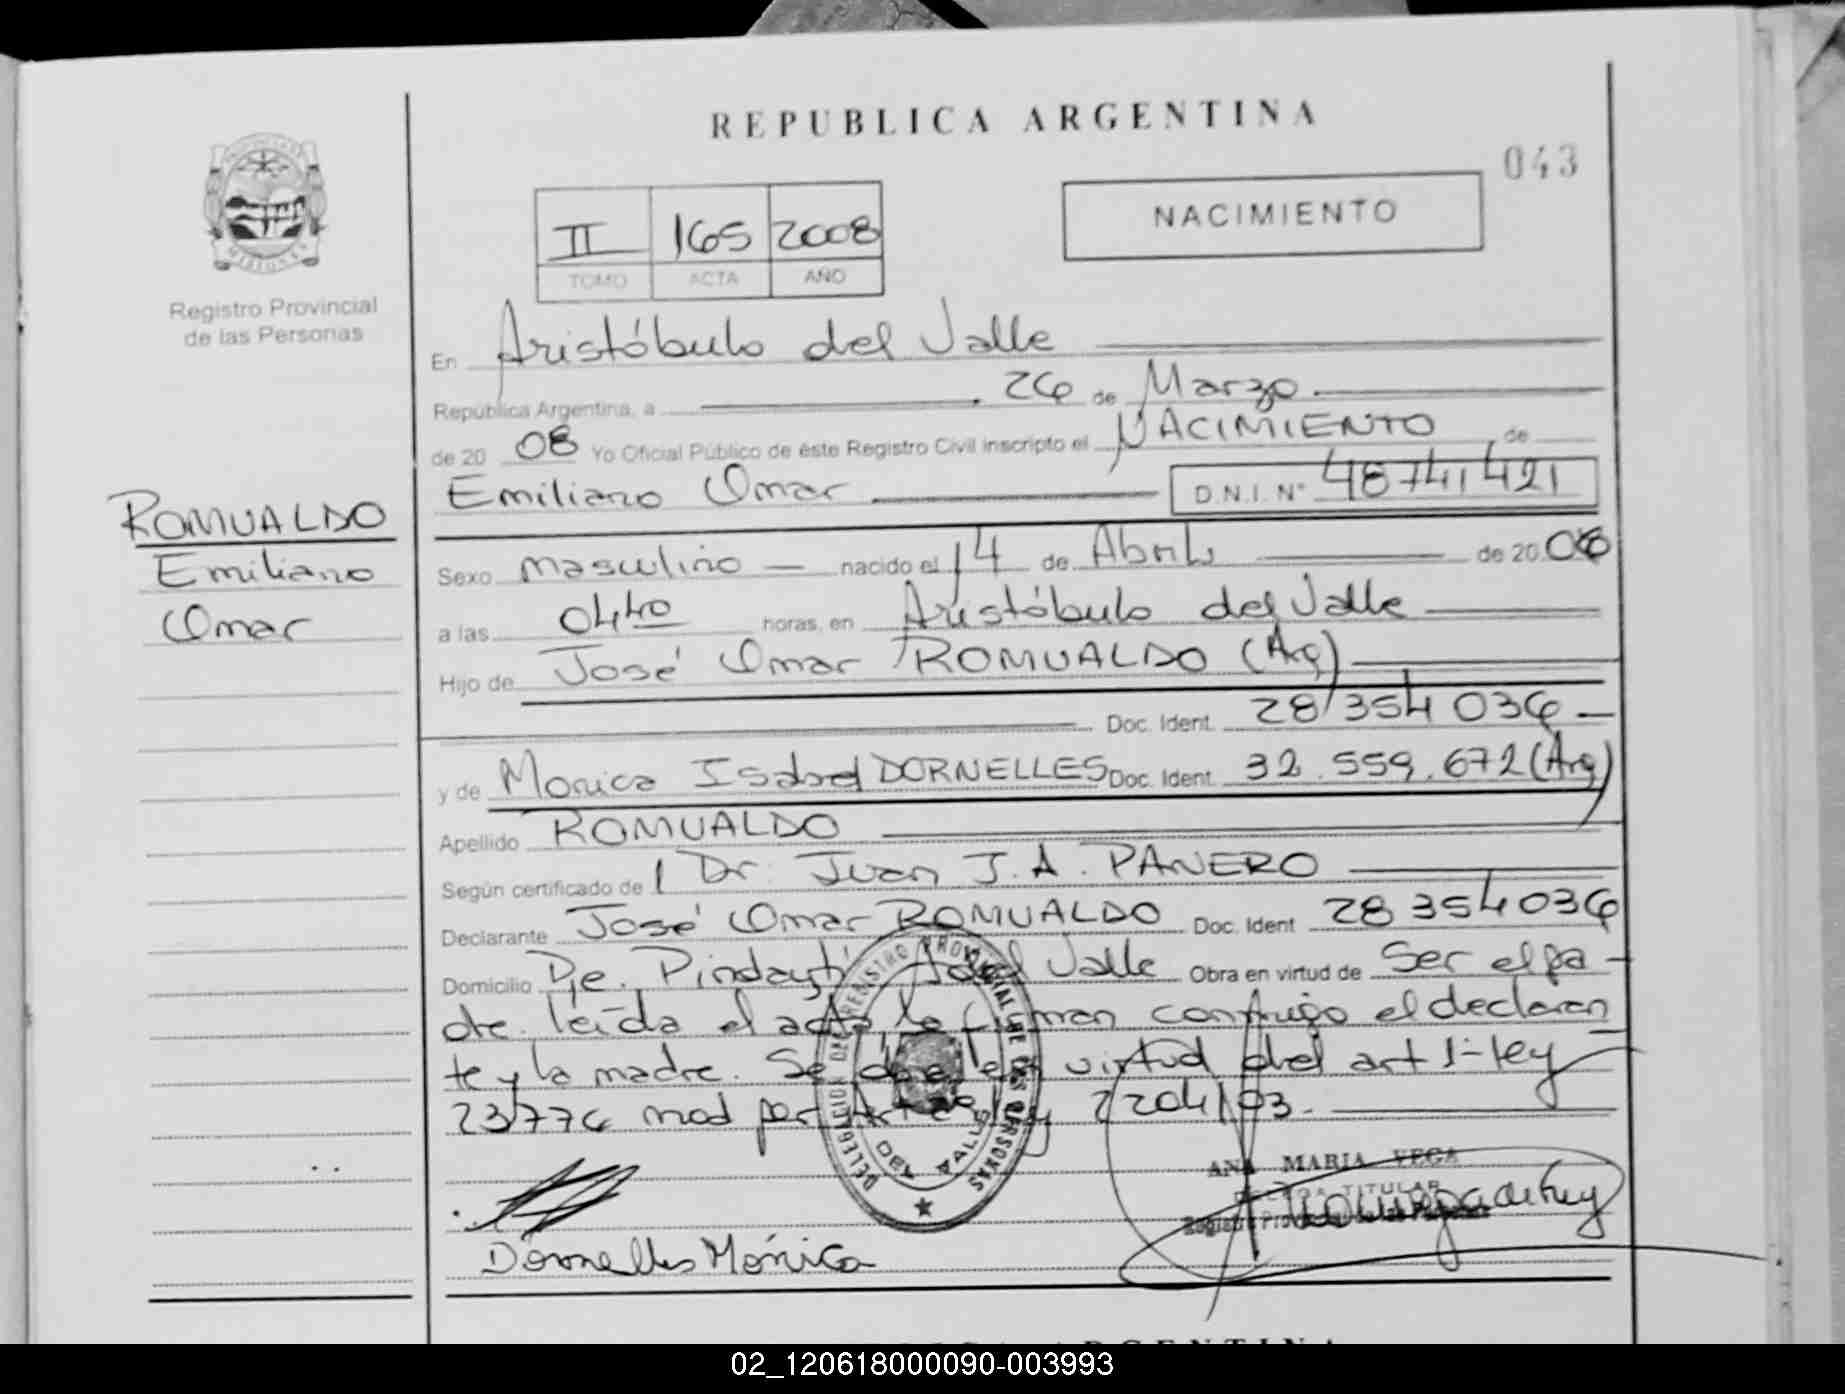 REPUBLICA ARGENTINA
043
NACIMIENTO
II 165 2008
TOMO ACTA AÑO
MISIONES
Registro Provincial
de las Personas
ROMUALDO
Emiliano
Omar
En Aristóbulo del Valle
República Argentina, a 26 de Marzo
de 20 08 Yo Oficial Público de éste Registro Civil inscripto el NACIMIENTO de
Emiliano Omar D.N.I. Nº 48741421
Sexo masculino nacido el 14 de Abril de 20
a las 0440 horas, en Aristóbulo del Valle
Hijo de José Omar ROMUALDO (Arg)
Doc. Ident. 28354036
y de Monica Isabel DORNELLES Doc. Ident. 32.559.672 (Arg)
Apellido ROMUALDO
Según certificado de Dr. Juan J. A. PANERO
Declarante José Omar ROMUALDO Doc. Ident 28354036
Domicilio Pje. Pindayti A del Valle Obra en virtud de Ser el pa-
dre. leída el acta, la firman conmigo el declaran
te y la madre. Se en virtud del art 1- ley
23776 mod por 2204/03.
DELEGACION DEL REGISTRO PROVINCIAL DE LAS PERSONAS
ADO VALLE
ANA MARIA VEGA
DELEGADA TITULAR
Registro Provincial de las Personas
Dornelles Mónica
02_120618000090-003993